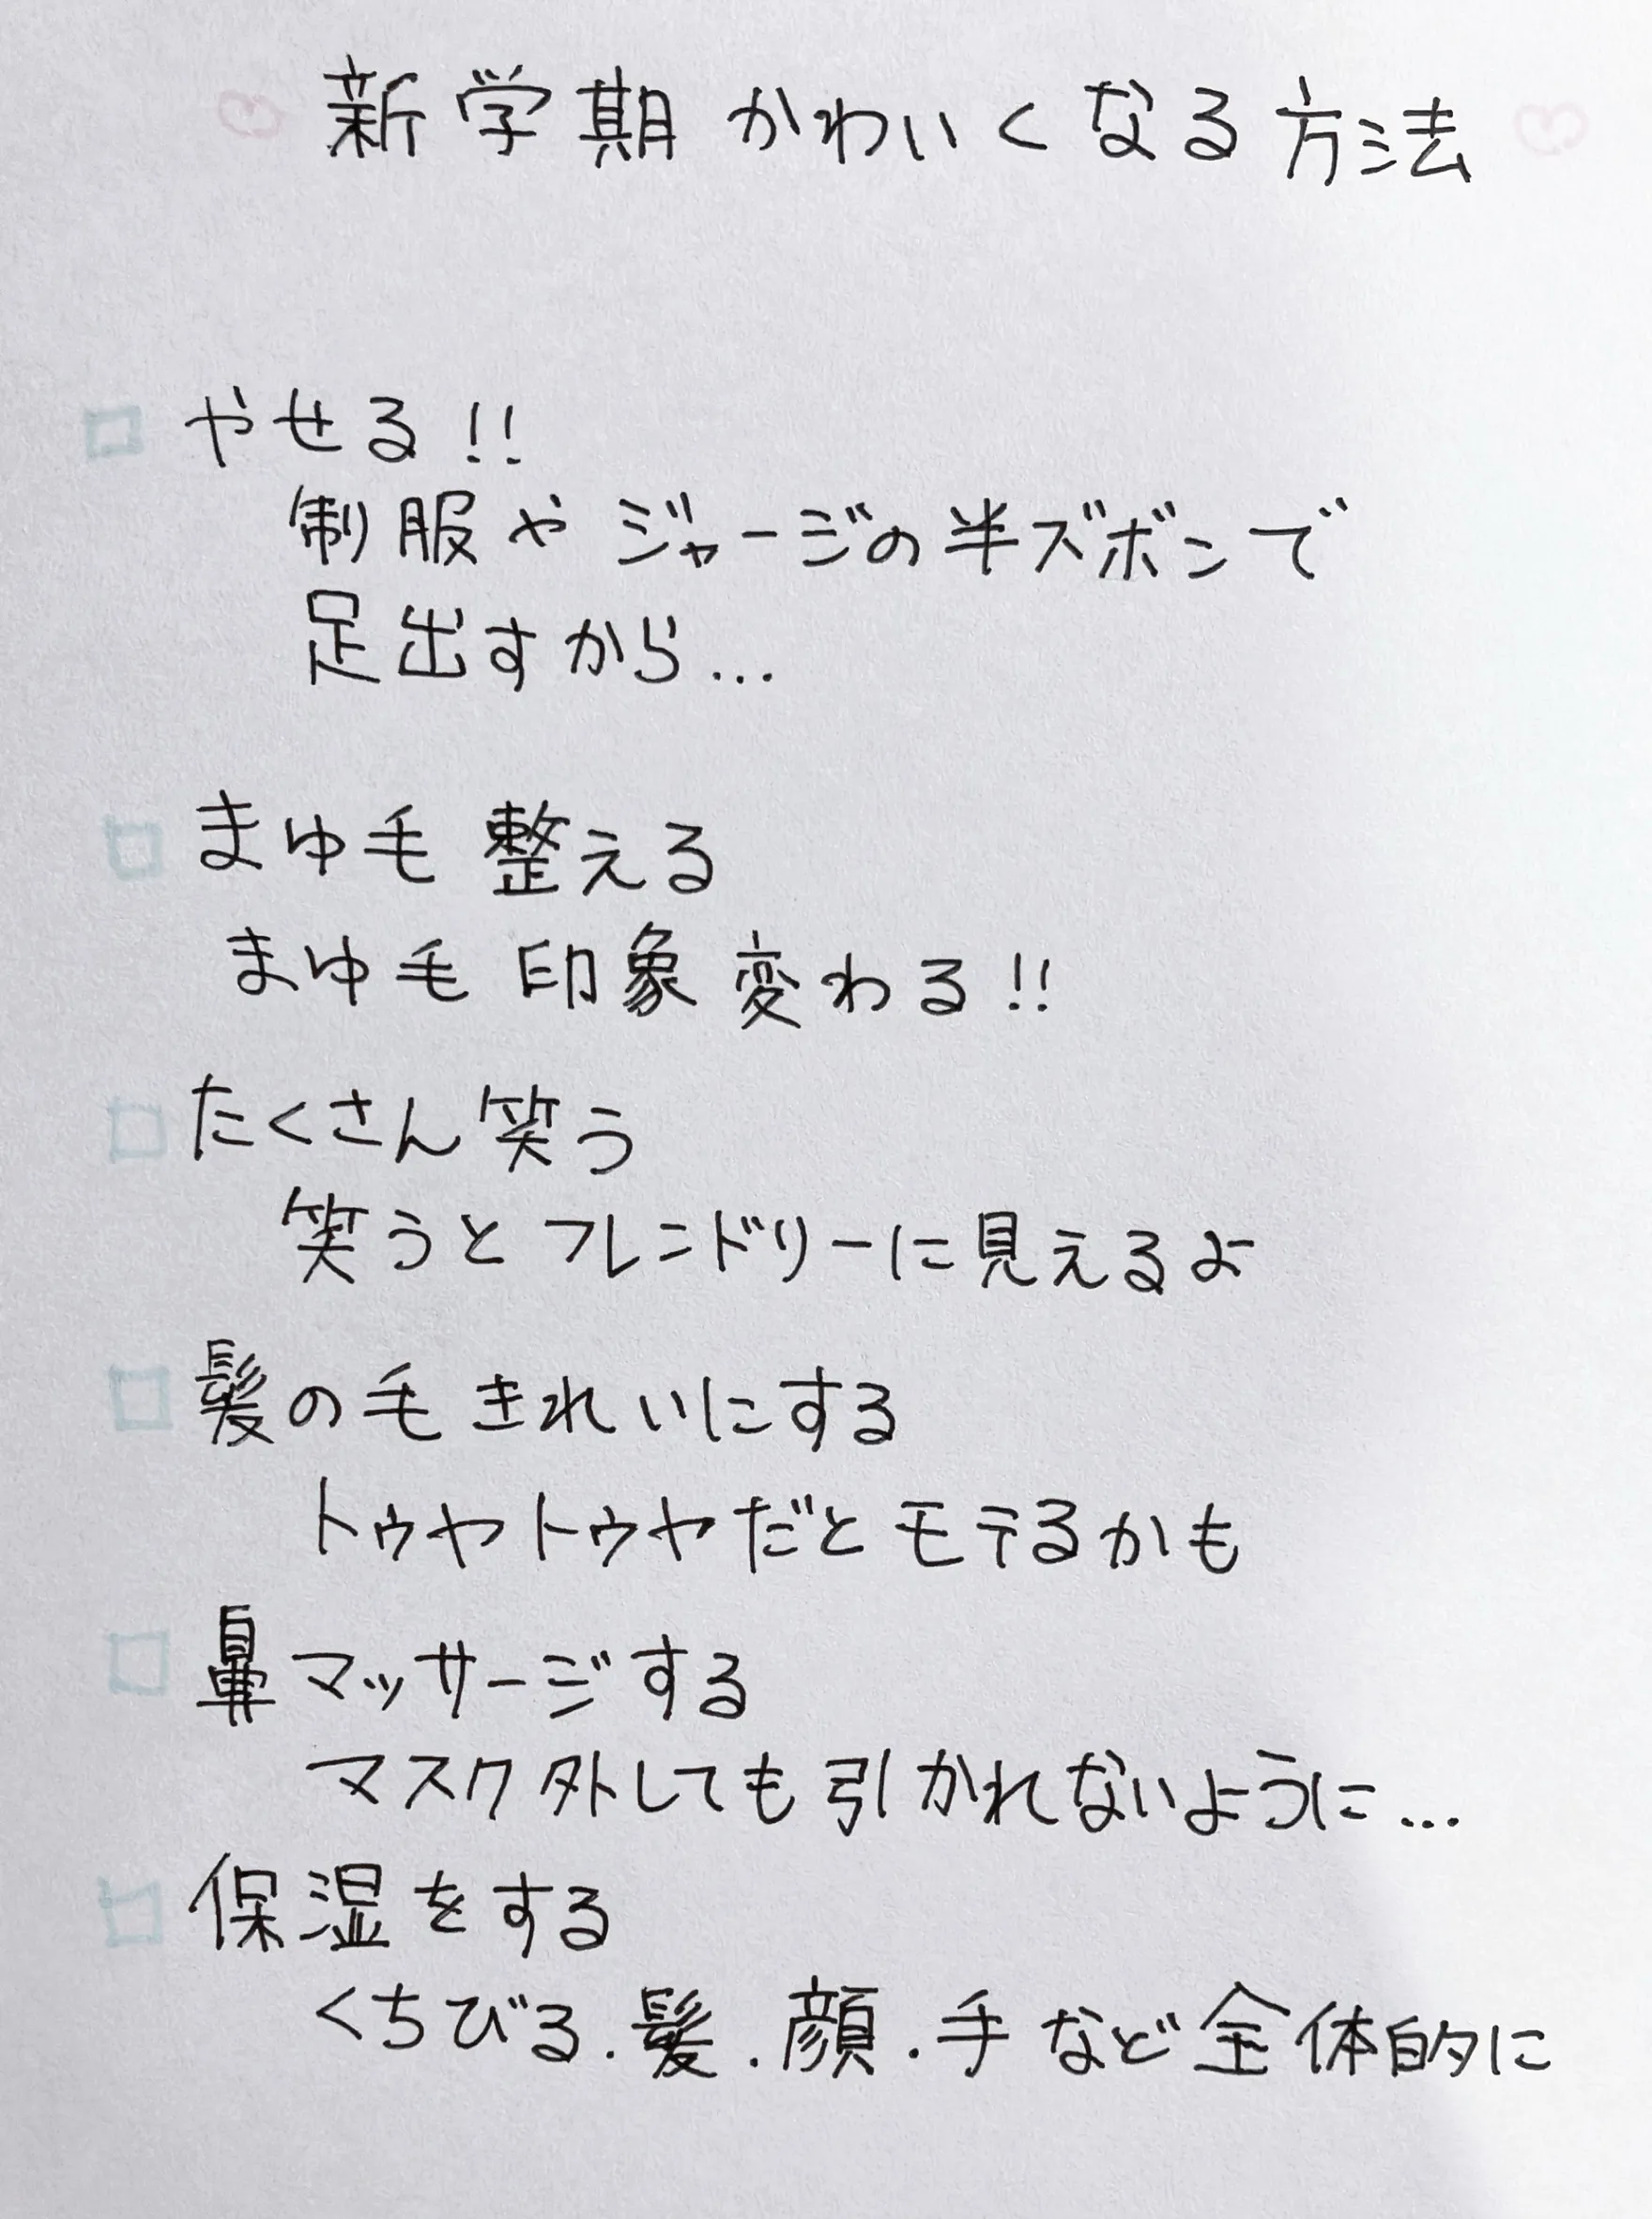 新学期かわいくなる方法
やせる!!
制服やジャージの半ズボンで
足出すから...
まゆ毛整える
まゆ毛印象変わる!!
たくさん笑う
笑うとフレンドリーに見えるよ
髪の毛きれいにする
トゥヤトゥヤだとモテるかも
鼻マッサージする
マスク外しても引かれないように...
保湿をする
くちびる.髪.顔.手など全体的に